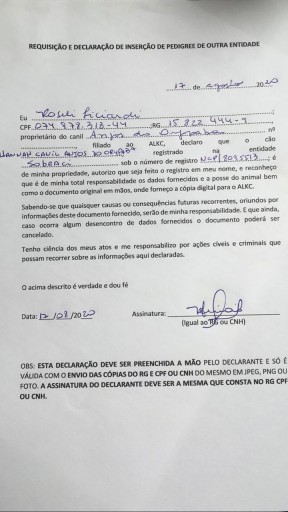 REQUISIÇÃO E DECLARAÇÃO DE INSERÇÃO DE PEDIGREE DE OUTRA ENTIDADE
17 de agosto 2020
Eu Roseli Liciardi;
CPF 074.878.318-44 ;RG 15 822 444-9
proprietário do canil Anjos do Orfanato nº
filiado ao ALKC, declaro que o cão
HANNAH CANIL ANJOS DO registrado na entidade
Sobraci sob o número de registro é
de minha propriedade, autorizo que seja feito o registro em meu nome, e reconheço
que é de minha total responsabilidade os dados fornecidos e a posse do animal bem
como o documento original em mãos, onde forneço a cópia digital para o ALKC.
Sabendo-se que quaisquer causas ou consequências futuras recorrentes, oriundos por
informações deste documento fornecido, serão de minha responsabilidade. E que ainda,
caso ocorra algum desencontro de dados fornecidos o documento poderá ser
cancelado.
Tenho ciência dos meus atos e me responsabilizo por ações cíveis e criminais que
possam recorrer sobre as informações aqui declaradas.
O acima descrito é verdade e dou fé
Data: 17/08/2020 Assinatura:
(Igual ao RG ou CNH)
OBS: ESTA DECLARAÇÃO DEVE SER PREENCHIDA A MÃO PELO DECLARANTE E SÓ É
VÁLIDA COM O ENVIO DAS CÓPIAS DO RG E CPF OU CNH DO MESMO EM JPEG, PNG OU
FOTO. A ASSINATURA DO DECLARANTE DEVE SER A MESMA QUE CONSTA NO RG CPF
OU CNH.